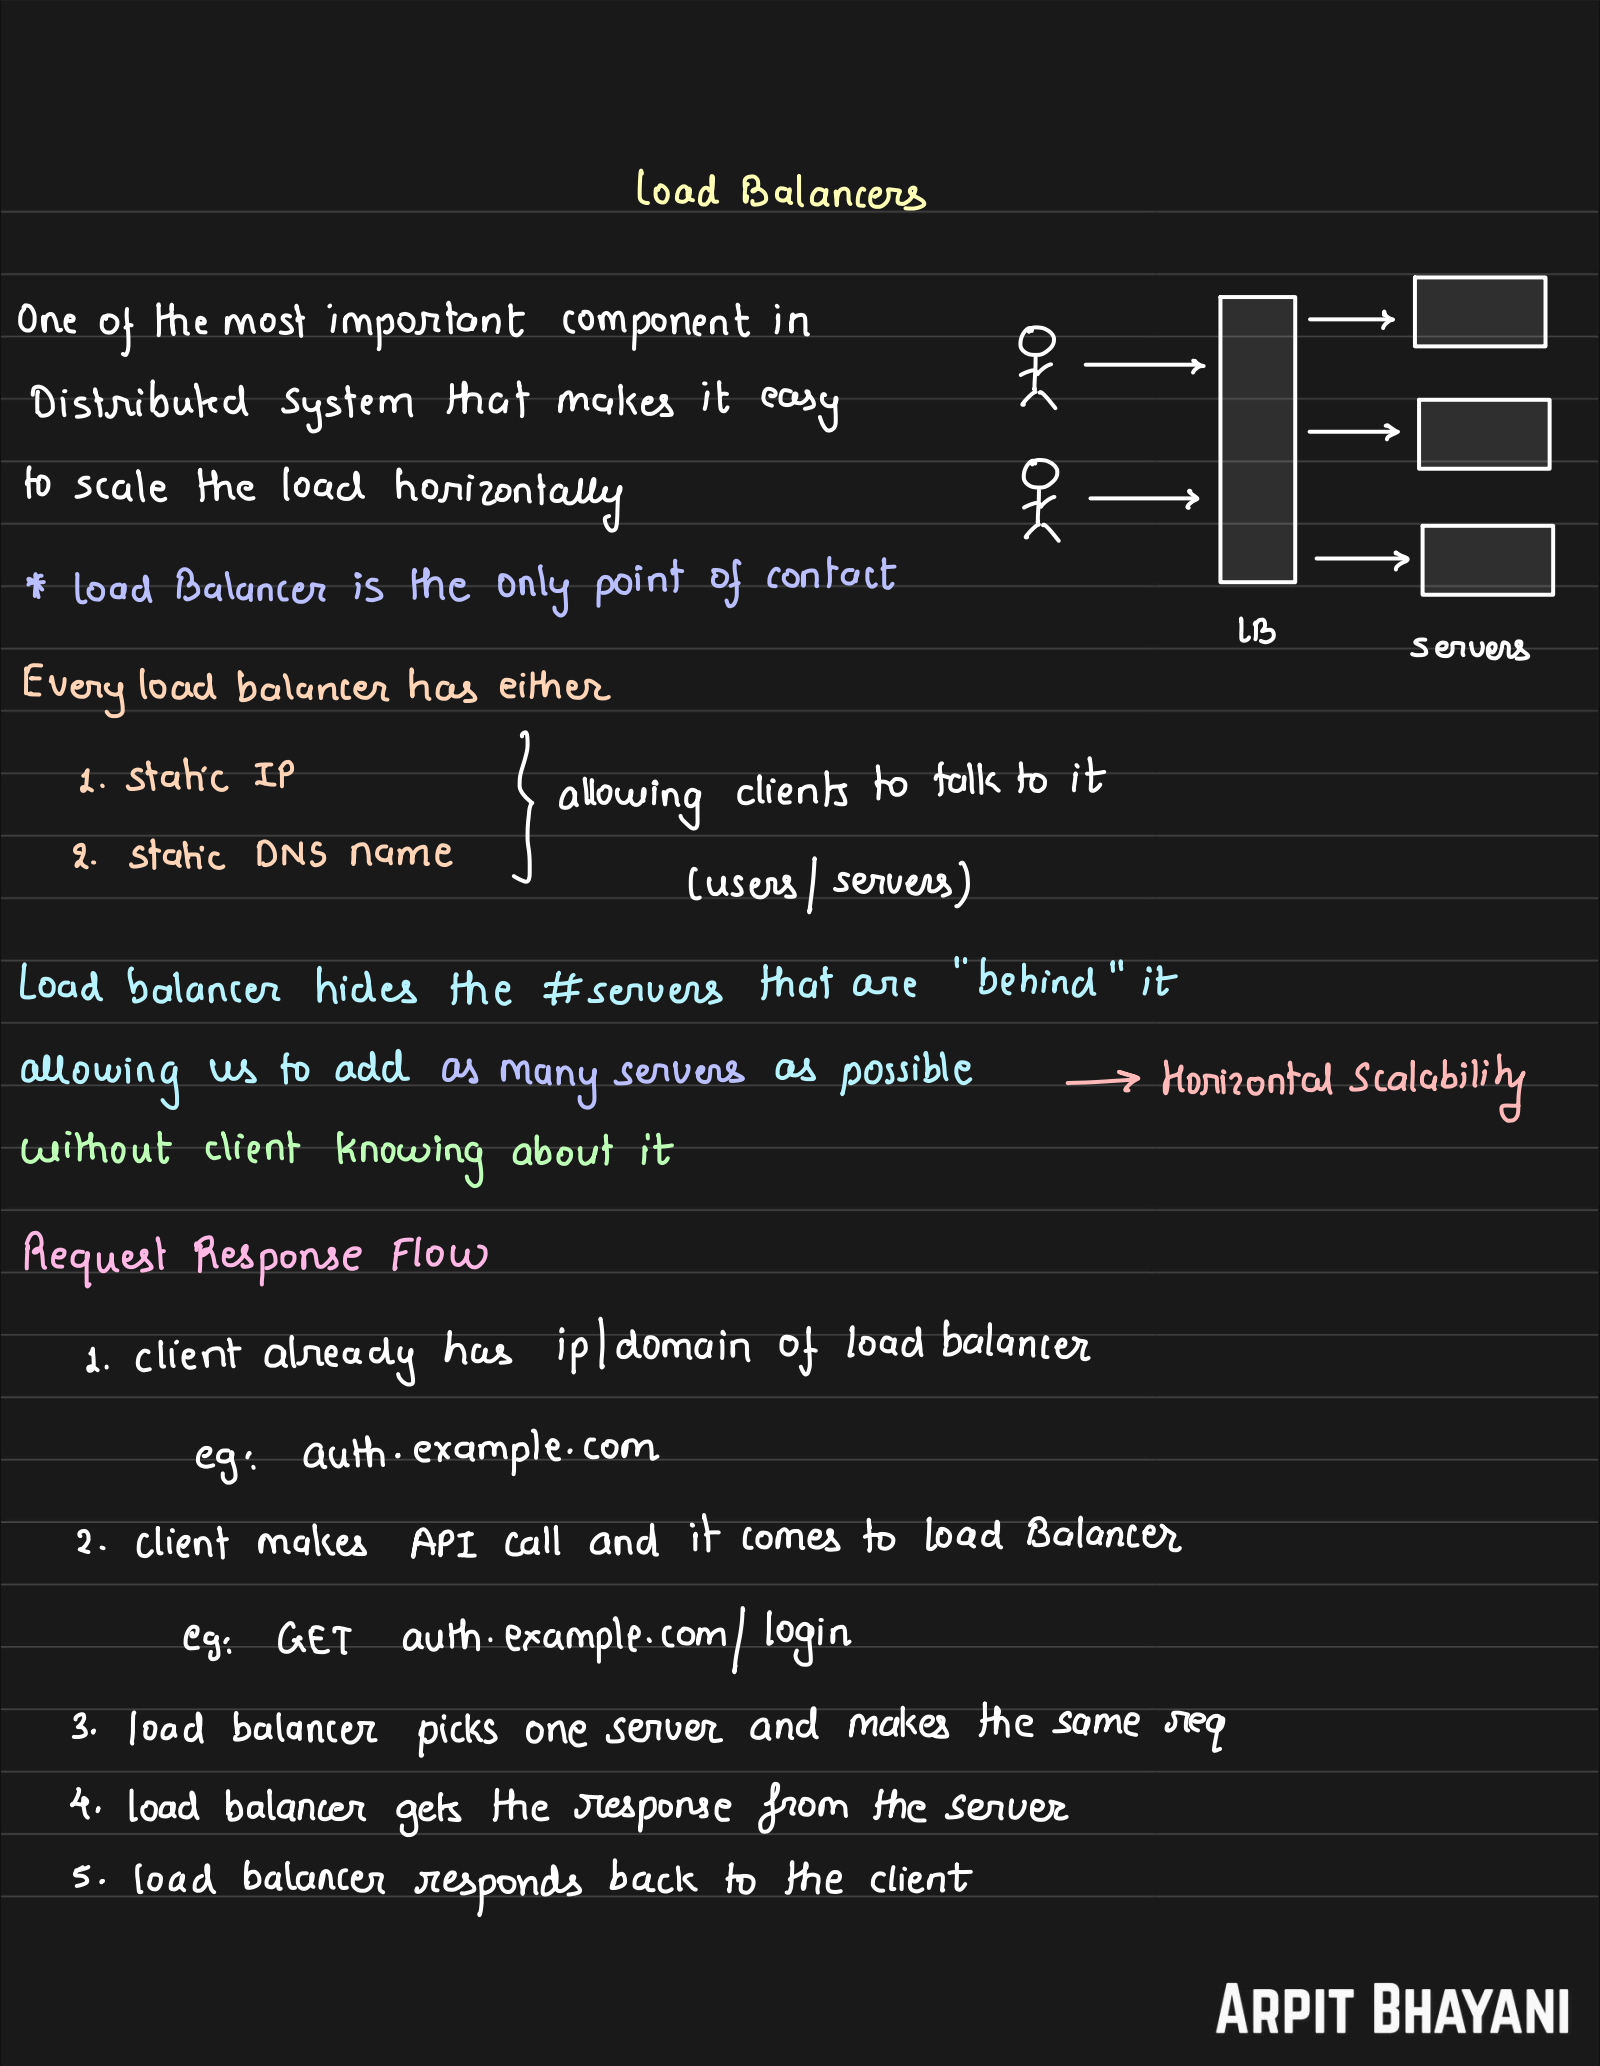 Load Balancers
One of the most important component in
Distributed system that makes it easy
to scale the load horizontally
* Load Balancer is the only point of contact
LB
servers
Every load balancer has either
1. static IP
2. static DNS name
allowing clients to talk to it
(users/servers)
Load balancer hides the #servers that are "behind" it
allowing us to add as many servers as possible → Horizontal Scalability
without client knowing about it
Request Response Flow
1. client already has ip|domain of load balancer
eg: auth.example.com
2. client makes API call and it comes to load Balancer
eg: GET auth.example.com/login
3. load balancer picks one server and makes the same req
4. load balancer gets the response from the server
5. load balancer responds back to the client
ARPIT BHAYANI